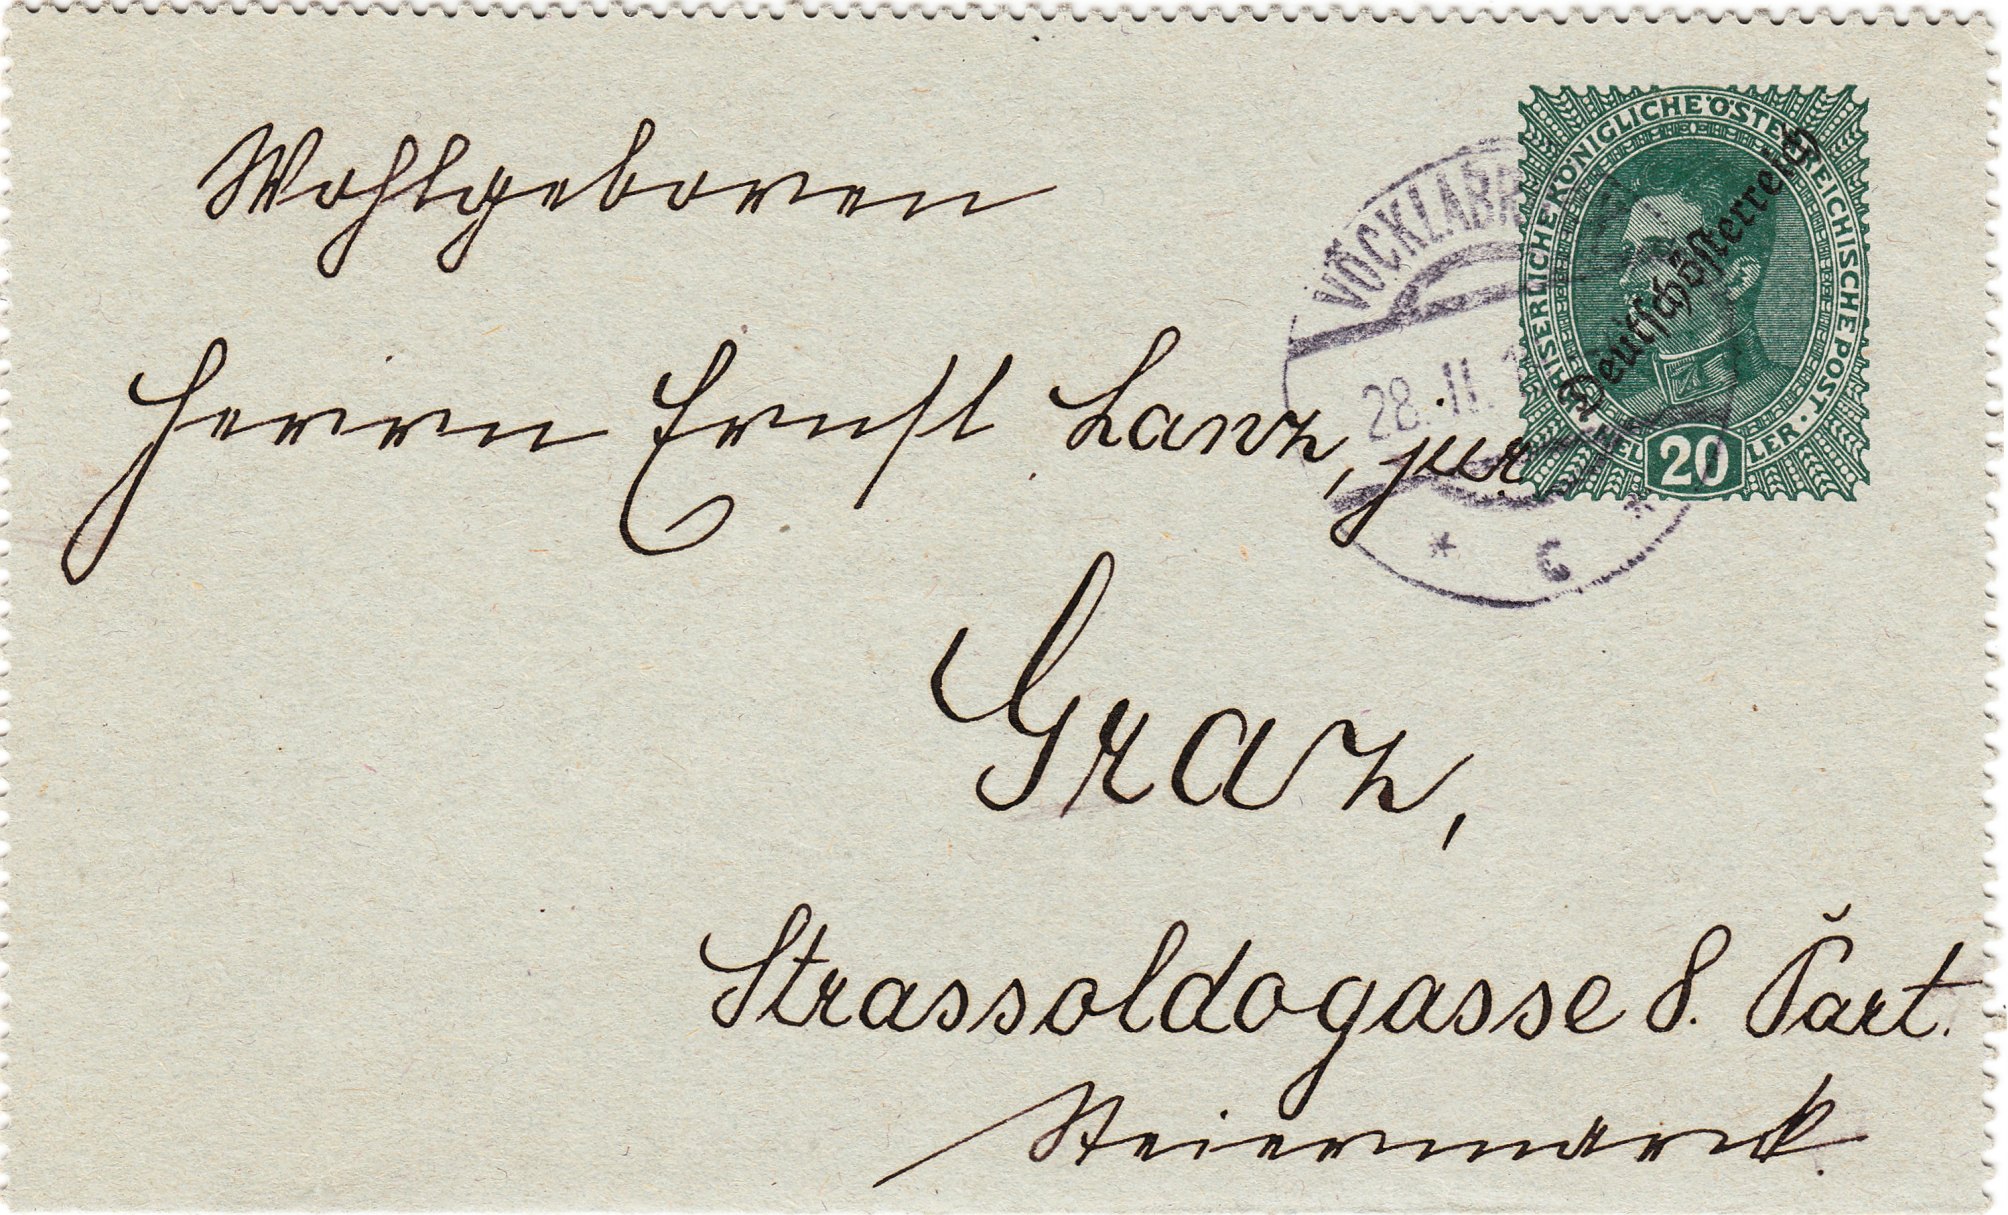 Wohlgeboren
Herrn Ernst Lanz, jur.
Graz,
Strassoldogasse 8. Part.
Steiermark.
KAISERLICHE KÖNIGLICHE ÖSTERREICHISCHE POST
Deutschösterreich
20
28. II.
* C *